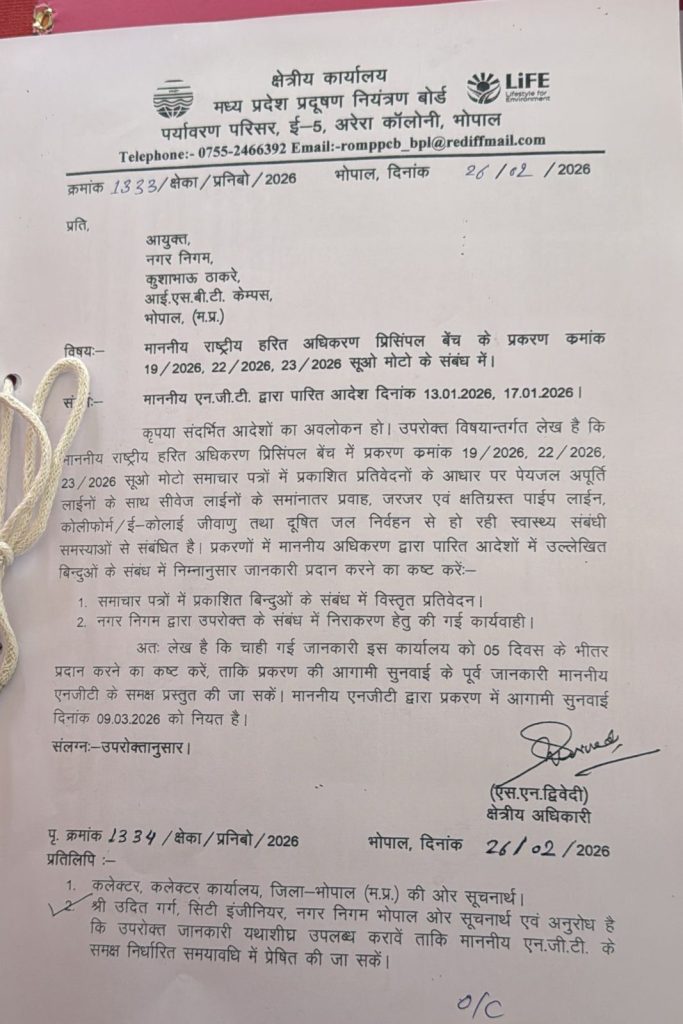 क्षेत्रीय कार्यालय
मध्य प्रदेश प्रदूषण नियंत्रण बोर्ड
LiFE
Lifestyle for
Environment
पर्यावरण परिसर, ई–5, अरेरा कॉलोनी, भोपाल
Telephone:- 0755-2466392 Email:-romppcb_bpl@rediffmail.com
क्रमांक 1333/क्षेका/प्रनिबो/2026 भोपाल, दिनांक 26/02/2026
प्रति,
आयुक्त,
नगर निगम,
कुशाभाऊ ठाकरे,
आई.एस.बी.टी. केम्पस,
भोपाल, (म.प्र.)
विषयः– माननीय राष्ट्रीय हरित अधिकरण प्रिसिंपल बेंच के प्रकरण क्रमांक
19/2026, 22/2026, 23/2026 सूओ मोटो के संबंध में।
माननीय एन.जी.टी. द्वारा पारित आदेश दिनांक 13.01.2026, 17.01.2026।
कृपया संदर्भित आदेशों का अवलोकन हो। उपरोक्त विषयान्तर्गत लेख है कि
माननीय राष्ट्रीय हरित अधिकरण प्रिसिंपल बेंच में प्रकरण क्रमांक 19/2026, 22/2026,
23/2026 सूओ मोटो समाचार पत्रों में प्रकाशित प्रतिवेदनों के आधार पर पेयजल अपूर्ति
लाईनों के साथ सीवेज लाईनों के समांनातर प्रवाह, जरजर एवं क्षतिग्रस्त पाईप लाईन,
कोलीफोर्म/ई–कोलाई जीवाणु तथा दूषित जल निर्वहन से हो रही स्वास्थ्य संबंधी
समस्याओं से संबंधित है। प्रकरणों में माननीय अधिकरण द्वारा पारित आदेशों में उल्लेखित
बिन्दुओं के संबंध में निम्नानुसार जानकारी प्रदान करने का कष्ट करेंः–
1. समाचार पत्रों में प्रकाशित बिन्दुओं के संबंध में विस्तृत प्रतिवेदन।
2. नगर निगम द्वारा उपरोक्त के संबंध में निराकरण हेतु की गई कार्यवाही।
अतः लेख है कि चाही गई जानकारी इस कार्यालय को 05 दिवस के भीतर
प्रदान करने का कष्ट करें, ताकि प्रकरण की आगामी सुनवाई के पूर्व जानकारी माननीय
एनजीटी के समक्ष प्रस्तुत की जा सकें। माननीय एनजीटी द्वारा प्रकरण में आगामी सुनवाई
दिनांक 09.03.2026 को नियत है।
संलग्नः–उपरोक्तानुसार।
(एस.एन.द्विवेदी)
क्षेत्रीय अधिकारी
पृ. क्रमांक 1334/क्षेका/प्रनिबो/2026 भोपाल, दिनांक 26/02/2026
प्रतिलिपि :–
1. कलेक्टर, कलेक्टर कार्यालय, जिला–भोपाल (म.प्र.) की ओर सूचनार्थ।
2. श्री उदित गर्ग, सिटी इंजीनियर, नगर निगम भोपाल ओर सूचनार्थ एवं अनुरोध है
कि उपरोक्त जानकारी यथाशीघ्र उपलब्ध करावें ताकि माननीय एन.जी.टी. के
समक्ष निर्धारित समयावधि में प्रेषित की जा सकें।
O/C